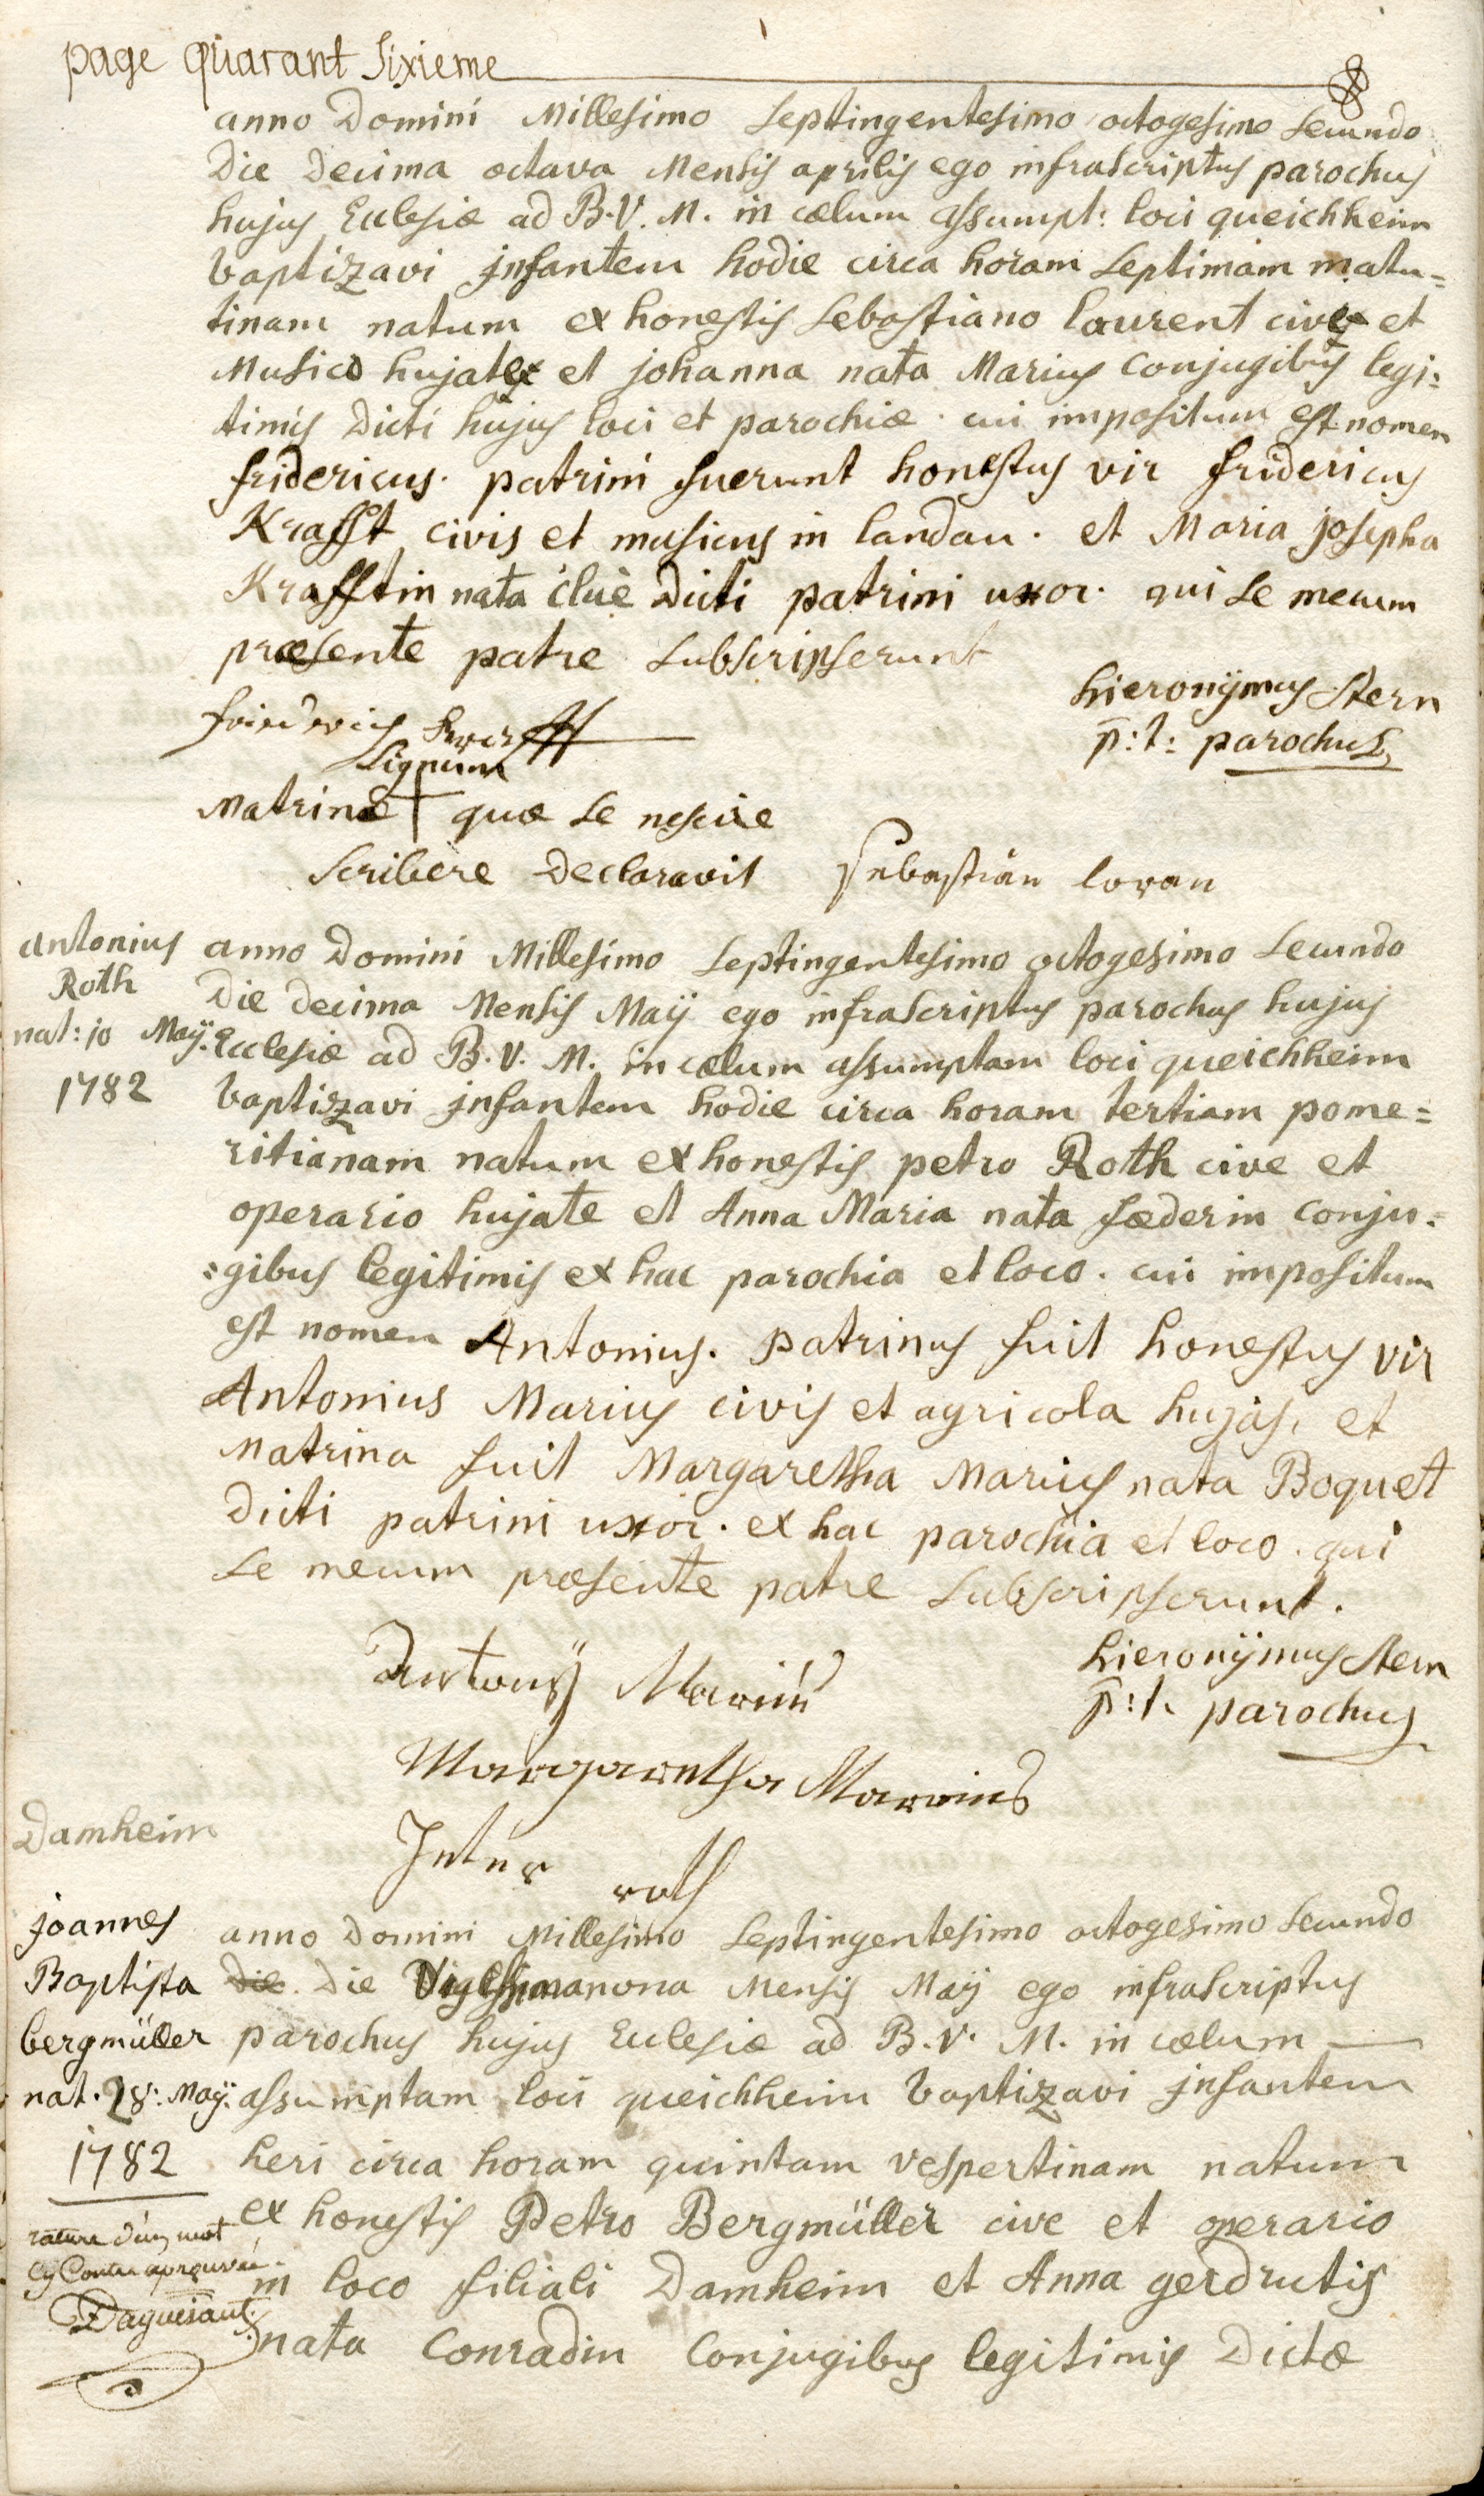 page quarant sixieme
anno Domini Millesimo Septingentesimo octogesimo secundo
Die Decima octava Mensis aprilis ego infrascriptus parochus
hujus Ecclesiæ ad B.V.M. in cælum assumpt: loci queichheim
baptizavi jnfantem hodie circa horam septimam matu=
tinam natum ex honestis Sebastiano laurent cive et
Musico hujate et johanna nata Marius conjugibus legi=
timis Dicti hujus loci et parochiæ. cui impositum est nomen
fridericus. patrini fuerunt honestus vir fridericus
Krafft civis et musicus in landau. et Maria josepha
Krafftin nata Dicti patrini uxor. qui se mecum
præsente patre subscripserunt
hieronÿmus Stern
p:t: parochus
friedrich
Signum
Matrinæ + quæ se nescire
scribere Declaravit
Sebastian loran
antonius
Roth
nat: 10 Maÿ.
1782
anno Domini Millesimo Septingentesimo octogesimo secundo
Die Decima Mensis Maÿ ego infrascriptus parochus hujus
Ecclesiæ ad B.V.M. in cælum assumptam loci queichheim
baptizavi jnfantem hodie circa horam tertiam pome=
ritianam natum ex honestis petro Roth cive et
operario hujate et Anna Maria nata fæderin conju=
=gibus legitimis ex hac parochia et loco. cui impositum
est nomen Antonius. patrinus fuit honestus vir
Antonius Marius civis et agricola hujas, et
Matrina fuit Margaretha Marius nata Boquet
Dicti patrini uxor. ex hac parochia et loco. qui
se mecum præsente patre subscripserunt.
hieronÿmus Stern
p:t. parochus
Antonÿ Marius
Margaretha Marius
roth
Damheim
joannes
Baptista
bergmüller
nat. 28: Maÿ.
1782
rature d'un mot
cy Contre aprouvée.
Daguesant
anno Domini Millesimo Septingentesimo octogesimo secundo
Die. Die Vigesimanona Mensis Maÿ ego infrascriptus
parochus hujus Ecclesiæ ad B.V.M. in cælum
assumptam loci queichheim baptizavi jnfantem
heri circa horam quintam vespertinam natum
ex honestis Petro Bergmüller cive et operario
in loco filiali Damheim et Anna gerdrutis
nata Conradin Conjugibus legitimis Dictæ